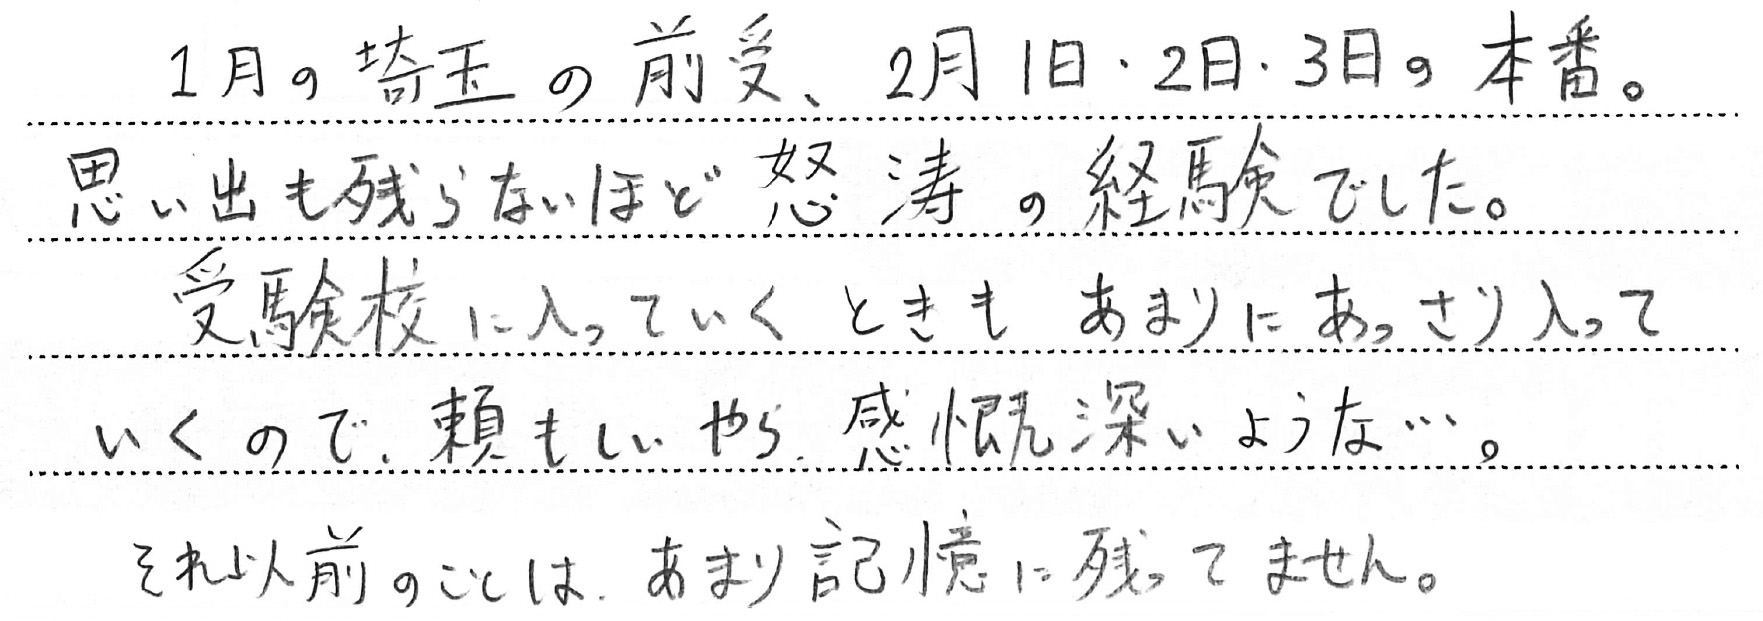 1月の埼玉の前受、2月1日・2日・3日の本番。
思い出も残らないほど怒涛の経験でした。
受験校に入っていくときもあまりにあっさり入って
いくので、頼もしいやら、感慨深いような…。
それ以前のことは、あまり記憶に残ってません。